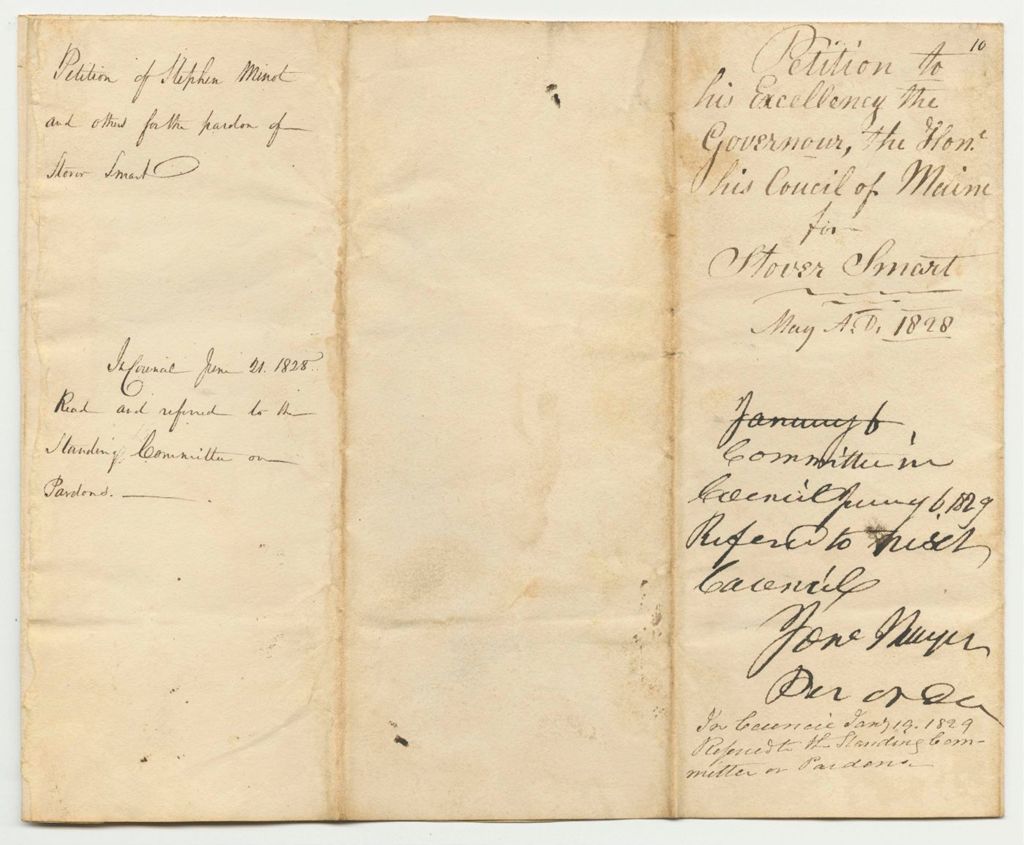 Petition of Stephen Minot
and others for the pardon of
Stover Smart
In Council June 21. 1828.
Read and referred to the
Standing Committee on
Pardons.
10
Petition to
his Excellency the
Governour, the Hon.e
his Coucil of Maine
for
Stover Smart
May A.D. 1828
January 6
Committee in
Council January 6, 1829
Refered to next
Council
Per order
In Council Jany 19. 1829
Refered to the Standing Com-
mittee on Pardons